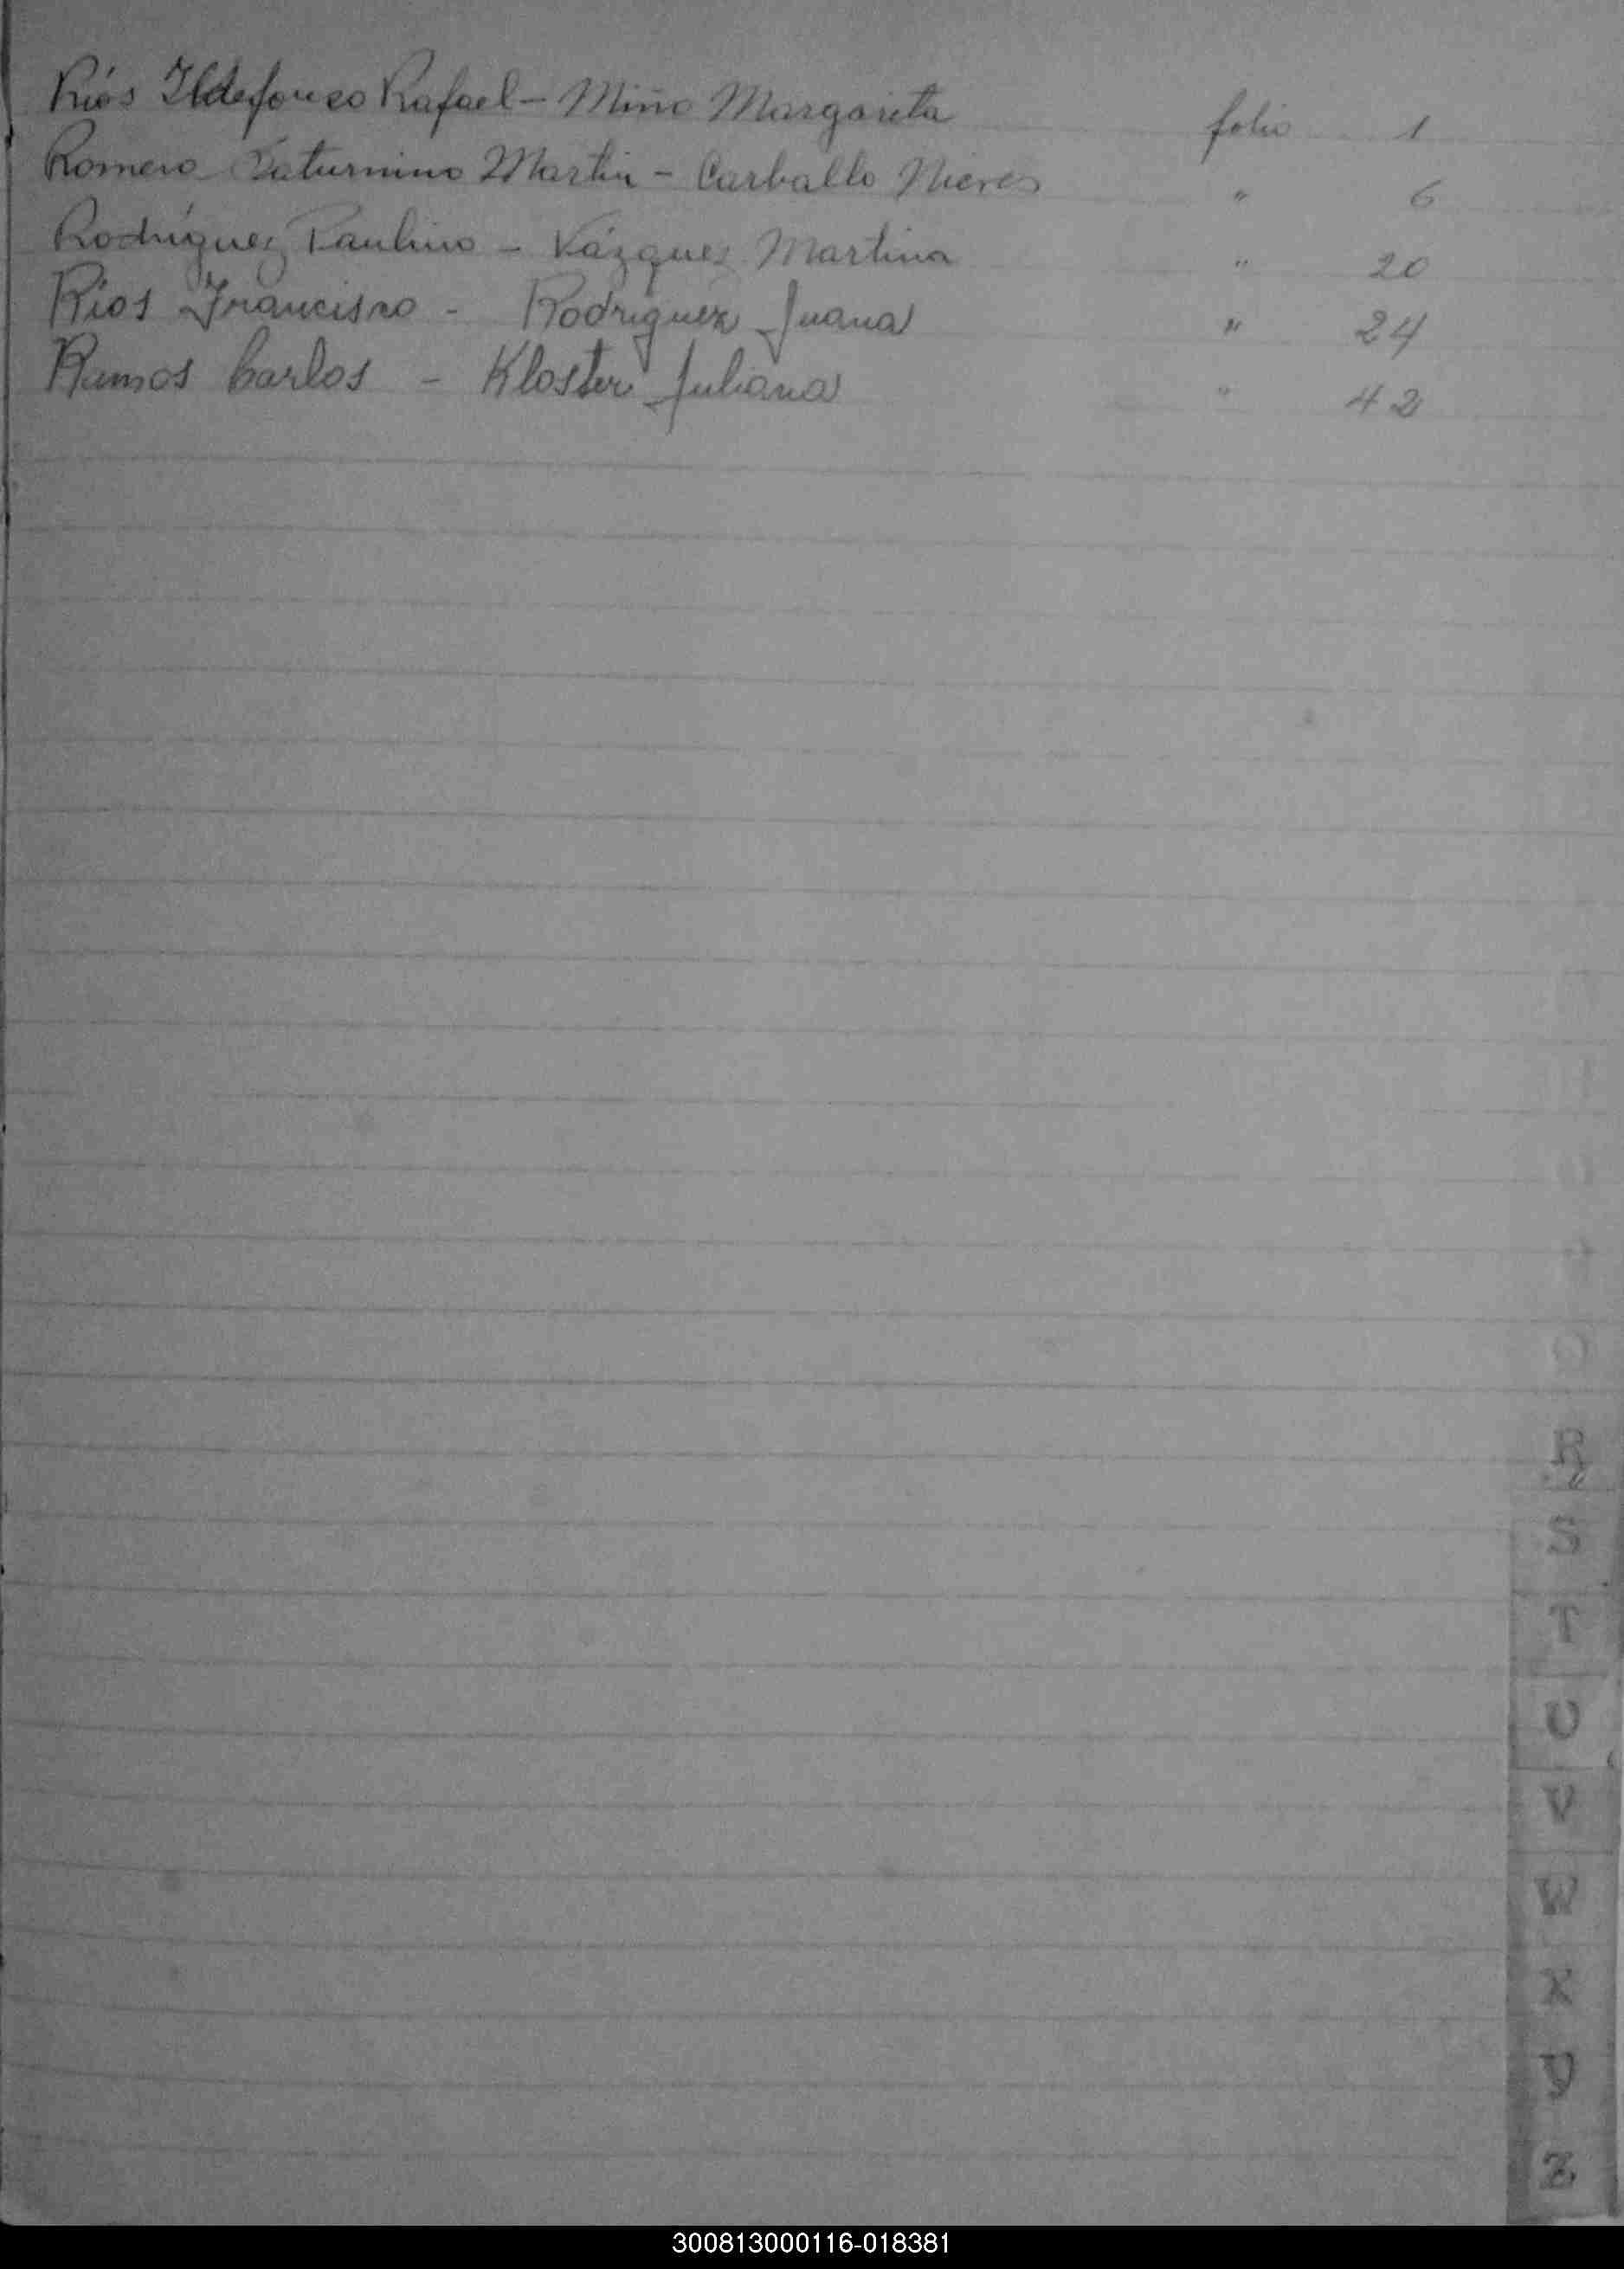 Ríos Ildefonso Rafael - Miño Margarita folio 1
Romero Saturnino Martin - Carballo Nieves " 6
Rodríguez Paulino - Vázquez Martina " 20
Ríos Francisco - Rodríguez Juana " 24
Ramos Carlos - Kloster Juliana " 42
R
S
T
U
V
W
X
Y
Z
300813000116-018381